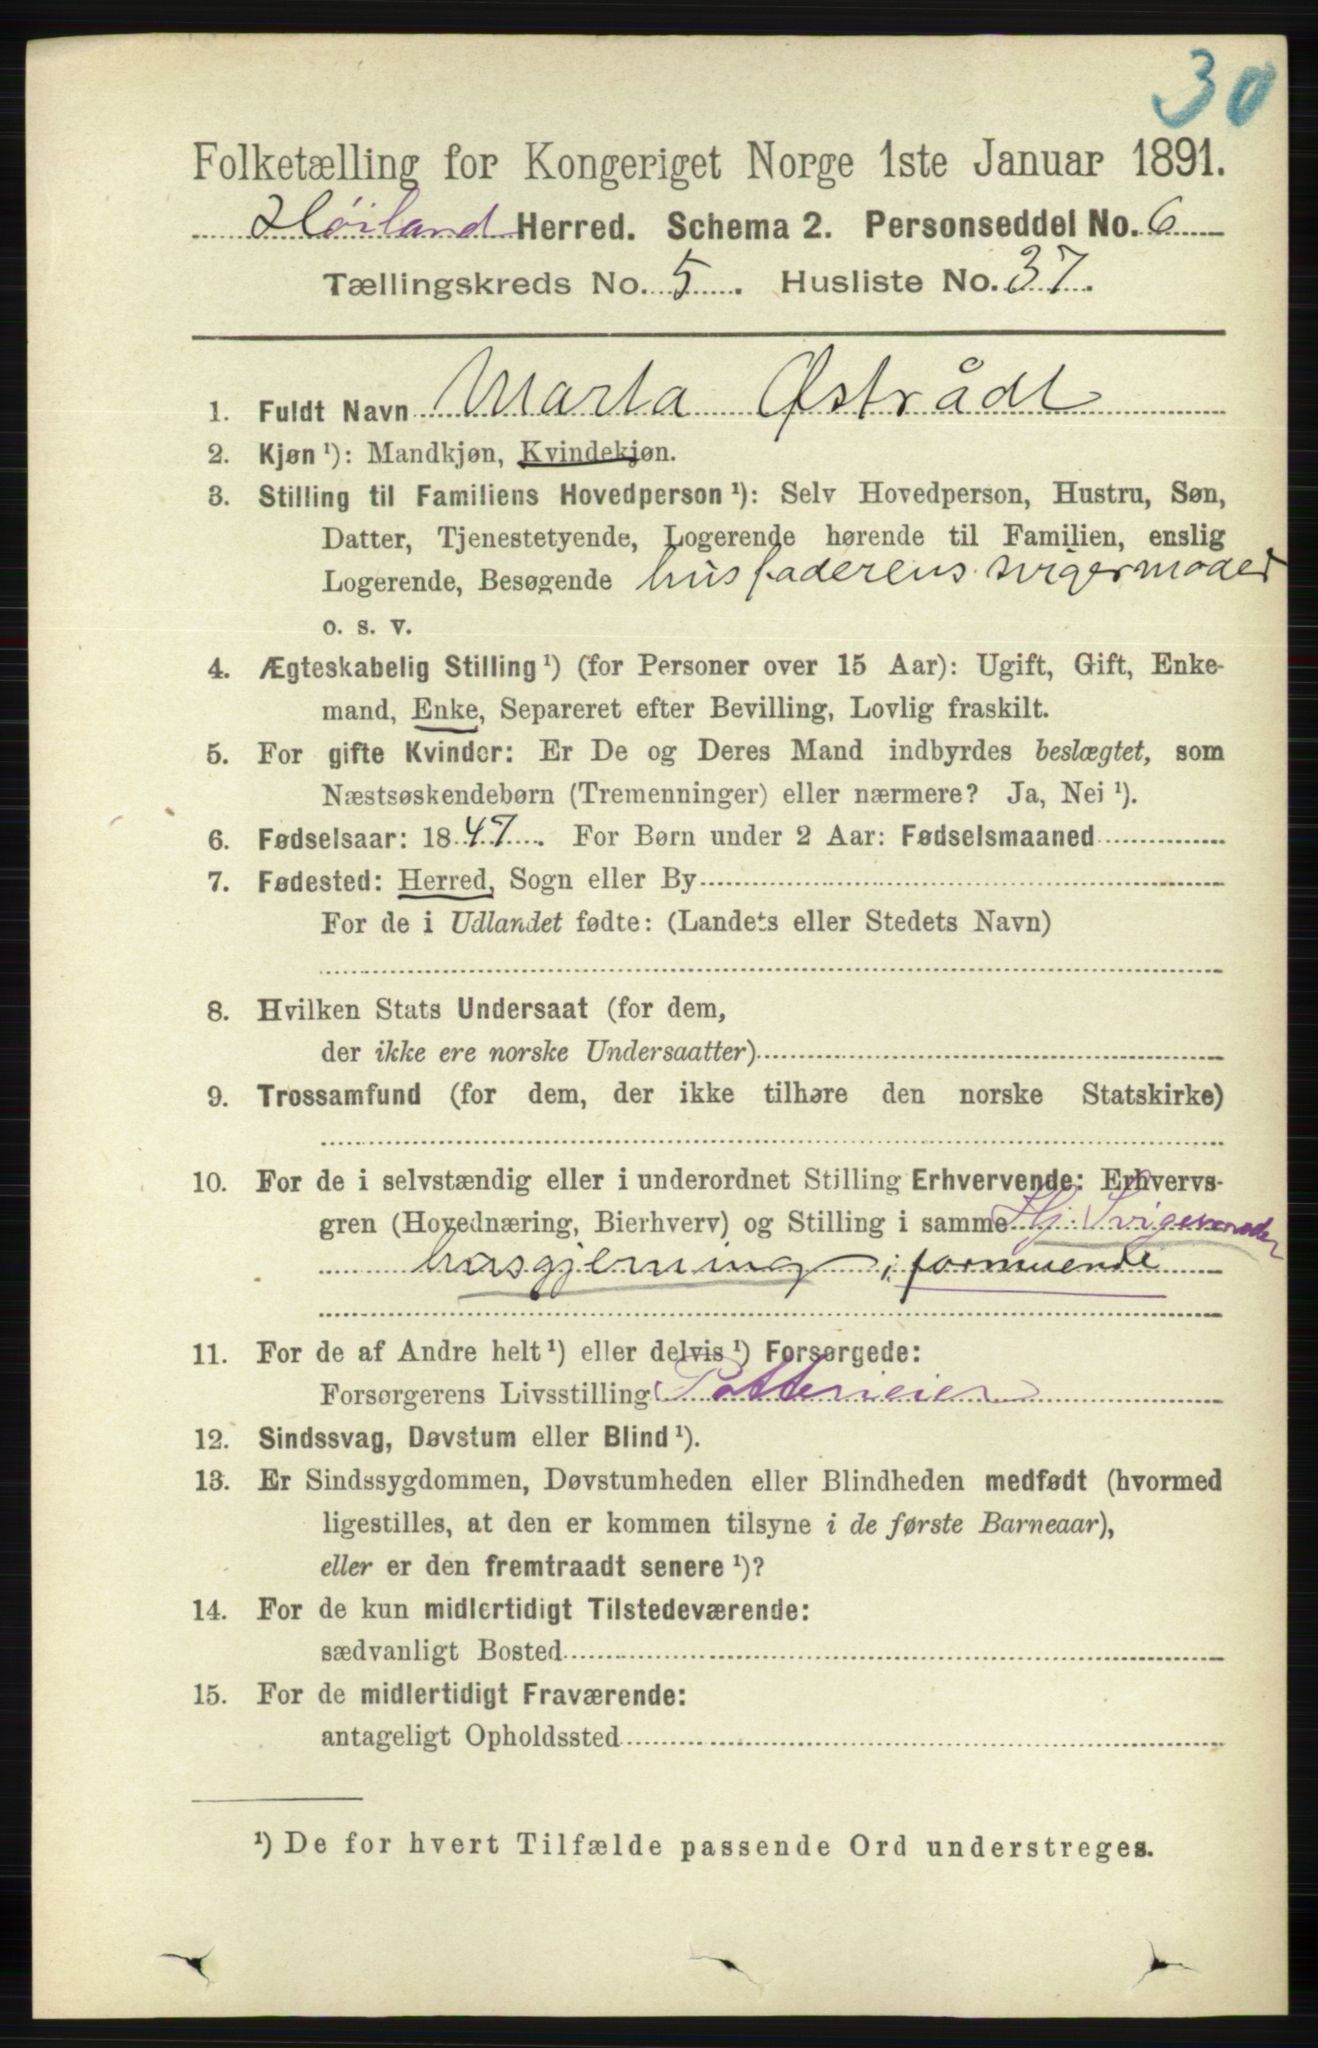 30
Folketælling for Kongeriget Norge 1ste Januar 1891.
Høiland Herred. Schema 2. Personseddel No. 6
Tællingskreds No. 5. Husliste No. 37.
1. Fuldt Navn Marta Østrådt
2. Kjøn ¹): Mandkjøn, Kvindekjøn.
3. Stilling til Familiens Hovedperson ¹): Selv Hovedperson, Hustru, Søn,
Datter, Tjenestetyende, Logerende hørende til Familien, enslig
Logerende, Besøgende husfaderens svigermoder
o. s. v.
4. Ægteskabelig Stilling ¹) (for Personer over 15 Aar): Ugift, Gift, Enke-
mand, Enke, Separeret efter Bevilling, Lovlig fraskilt.
5. For gifte Kvinder: Er De og Deres Mand indbyrdes beslægtet, som
Næstsøskendebørn (Tremenninger) eller nærmere? Ja, Nei ¹).
6. Fødselsaar: 1847. For Børn under 2 Aar: Fødselsmaaned
7. Fødested: Herred, Sogn eller By
For de i Udlandet fødte: (Landets eller Stedets Navn)
8. Hvilken Stats Undersaat (for dem,
der ikke ere norske Undersaatter)
9. Trossamfund (for dem, der ikke tilhøre den norske Statskirke)
10. For de i selvstændig eller i underordnet Stilling Erhvervende: Erhvervs-
gren (Hovednæring, Bierhverv) og Stilling i samme Hj. Svigermoder
husgjerning; formuende
11. For de af Andre helt ¹) eller delvis ¹) Forsørgede:
Forsørgerens Livsstilling Potterieier
12. Sindssvag, Døvstum eller Blind ¹).
13. Er Sindssygdommen, Døvstumheden eller Blindheden medfødt (hvormed
ligestilles, at den er kommen tilsyne i de første Barneaar),
eller er den fremtraadt senere ¹)?
14. For de kun midlertidigt Tilstedeværende:
sædvanligt Bosted
15. For de midlertidigt Fraværende:
antageligt Opholdssted
¹) De for hvert Tilfælde passende Ord understreges.